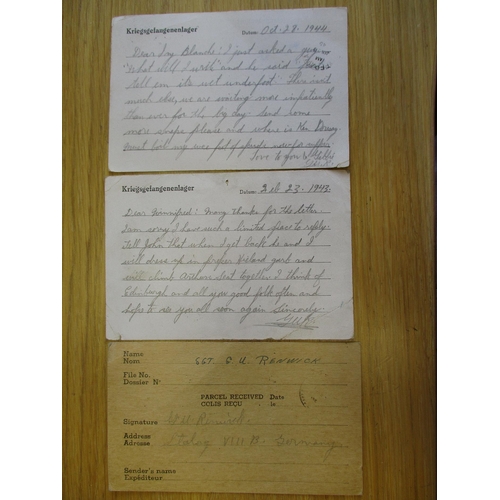 Kriegsgefangenenlager Datum: Oct. 28. 1944
Dear Joy Blanche! I just asked a guy
"What will I write" and he said
tell em its wet underfoot. There isnt
much else, we are waiting more impatiently
than ever for the big day. Send some
more snaps please and where is Ken
love to you
Kriegsgefangenenlager Datum: Feb 23. 1943.
Dear Many thanks for the letter.
I am sorry I have such a limited place to reply.
Tell John that when I get back he and I
will dress up in proper garb and
will climb Arthurs Seat together. I think of
Edinburgh and all you good folk often and
hope to see you all soon again Sincerely
Name
Nom SGT.
File No.
Dossier Nº
PARCEL RECEIVED Date
COLIS REÇU le
Signature
Address
Adresse Stalag VIII B Germany
Sender's name
Expéditeur